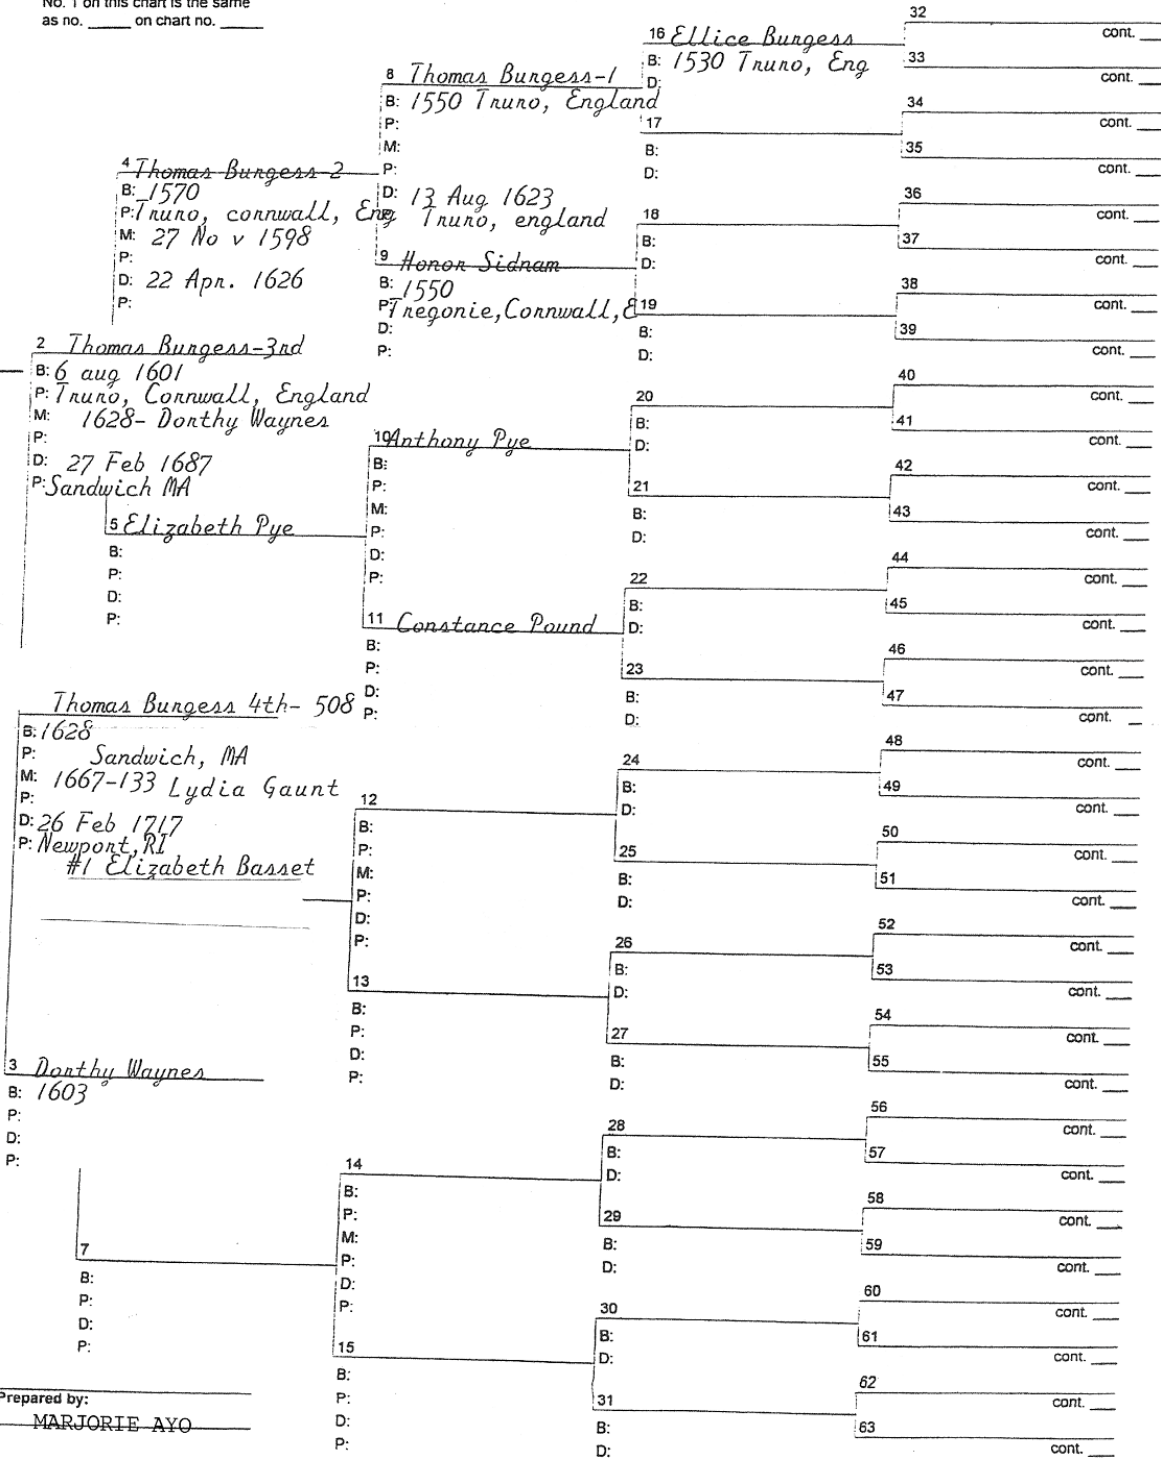 No. 1 on this chart is the same
as no. _____ on chart no. _____
2 Thomas Burgess-3rd
B: 6 aug 1601
P: Truro, Cornwall, England
M: 1628- Dorthy Waynes
P:
D: 27 Feb 1687
P: Sandwich MA
Thomas Burgess 4th- 508
B: 1628
P: Sandwich, MA
M: 1667-133 Lydia Gaunt
P:
D: 26 Feb 1717
P: Newport, RI
#1 Elizabeth Basset
3 Dorthy Waynes
B: 1603
P:
D:
P:
4 Thomas Burgess-2
B: 1570
P: Truro, cornwall, Eng
M: 27 No v 1598
P:
D: 22 Apr. 1626
P:
5 Elizabeth Pye
B:
P:
D:
P:
7
B:
P:
D:
P:
8 Thomas Burgess-1
B: 1550 Truro, England
P:
M:
P:
D: 13 Aug 1623
Truro, england
9 Honor Sidnam
B: 1550
P: Tregonie, Cornwall, E
D:
P:
10 Anthony Pye
B:
P:
M:
P:
D:
P:
11 Constance Pound
B:
P:
D:
P:
12
B:
P:
M:
P:
D:
P:
13
B:
P:
D:
P:
14
B:
P:
M:
P:
D:
P:
15
B:
P:
D:
P:
16 Ellice Burgess
B: 1530 Truro, Eng
D:
17
B:
D:
18
B:
D:
19
B:
D:
20
B:
D:
21
B:
D:
22
B:
D:
23
B:
D:
24
B:
D:
25
B:
D:
26
B:
D:
27
B:
D:
28
B:
D:
29
B:
D:
30
B:
D:
31
B:
D:
32
cont. ___
33
cont. ___
34
cont. ___
35
cont. ___
36
cont. ___
37
cont. ___
38
cont. ___
39
cont. ___
40
cont. ___
41
cont. ___
42
cont. ___
43
cont. ___
44
cont. ___
45
cont. ___
46
cont. ___
47
cont. _
48
cont. ___
49
cont. ___
50
cont. ___
51
cont. ___
52
cont. ___
53
cont. ___
54
cont. ___
55
cont. ___
56
cont. ___
57
cont. ___
58
cont. ___
59
cont. ___
60
cont. ___
61
cont. ___
62
cont. ___
63
cont. ___
Prepared by:
MARJORIE AYO